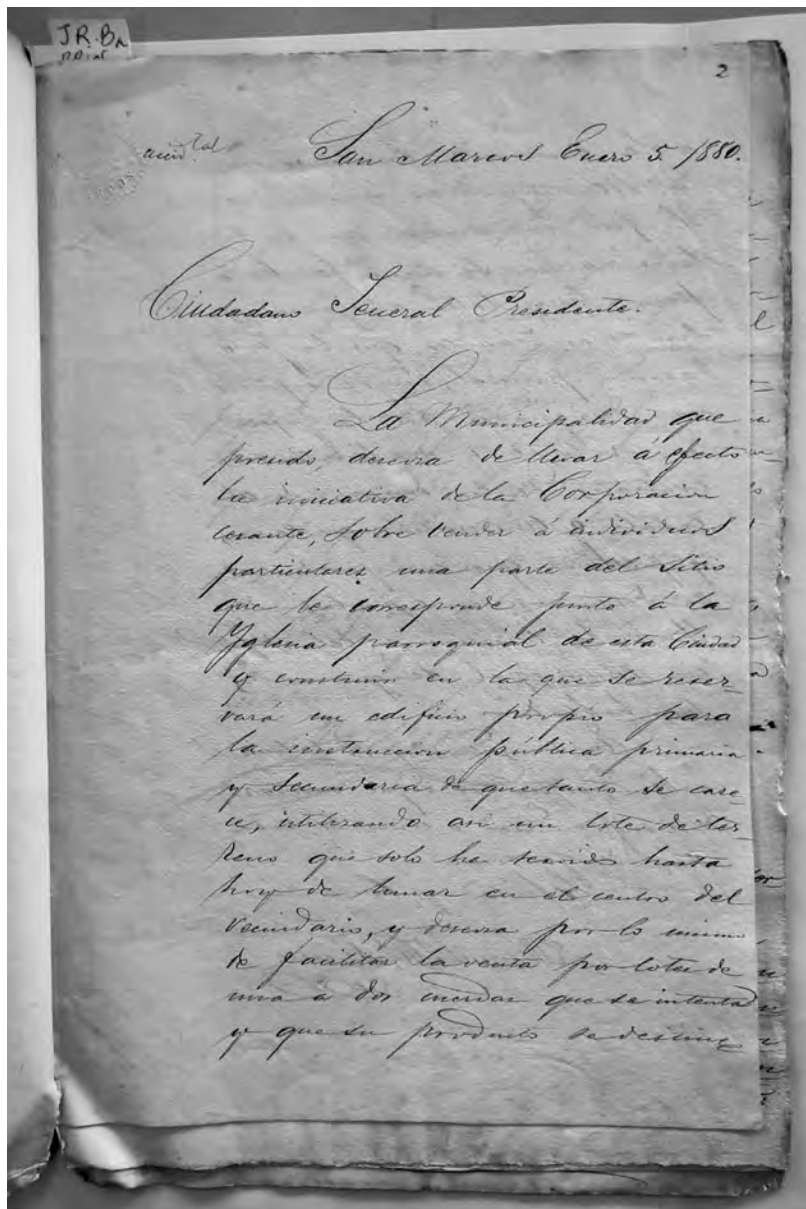 J.R.B.
2
San Marcos Enero 5. 1880.
Ciudadano General Presidente.
La Municipalidad que
presido, deseosa de llevar á efecto
la iniciativa de la Corporacion
cesante, sobre vender á individuos
particulares una parte del sitio
que le corresponde junto á la
Yglesia parroquial de esta Ciudad
y construir en la que se reser-
vará un edificio propio para
la instruccion pública primaria
y secundaria de que tanto se care-
ce, utilizando asi un lote de ter-
reno que solo ha servido hasta
hoy de en el centro del
vecindario, y deseosa por lo mismo
de facilitar la venta por lotes de
una á dos cuerdas que se intenta
y que su producto se destine